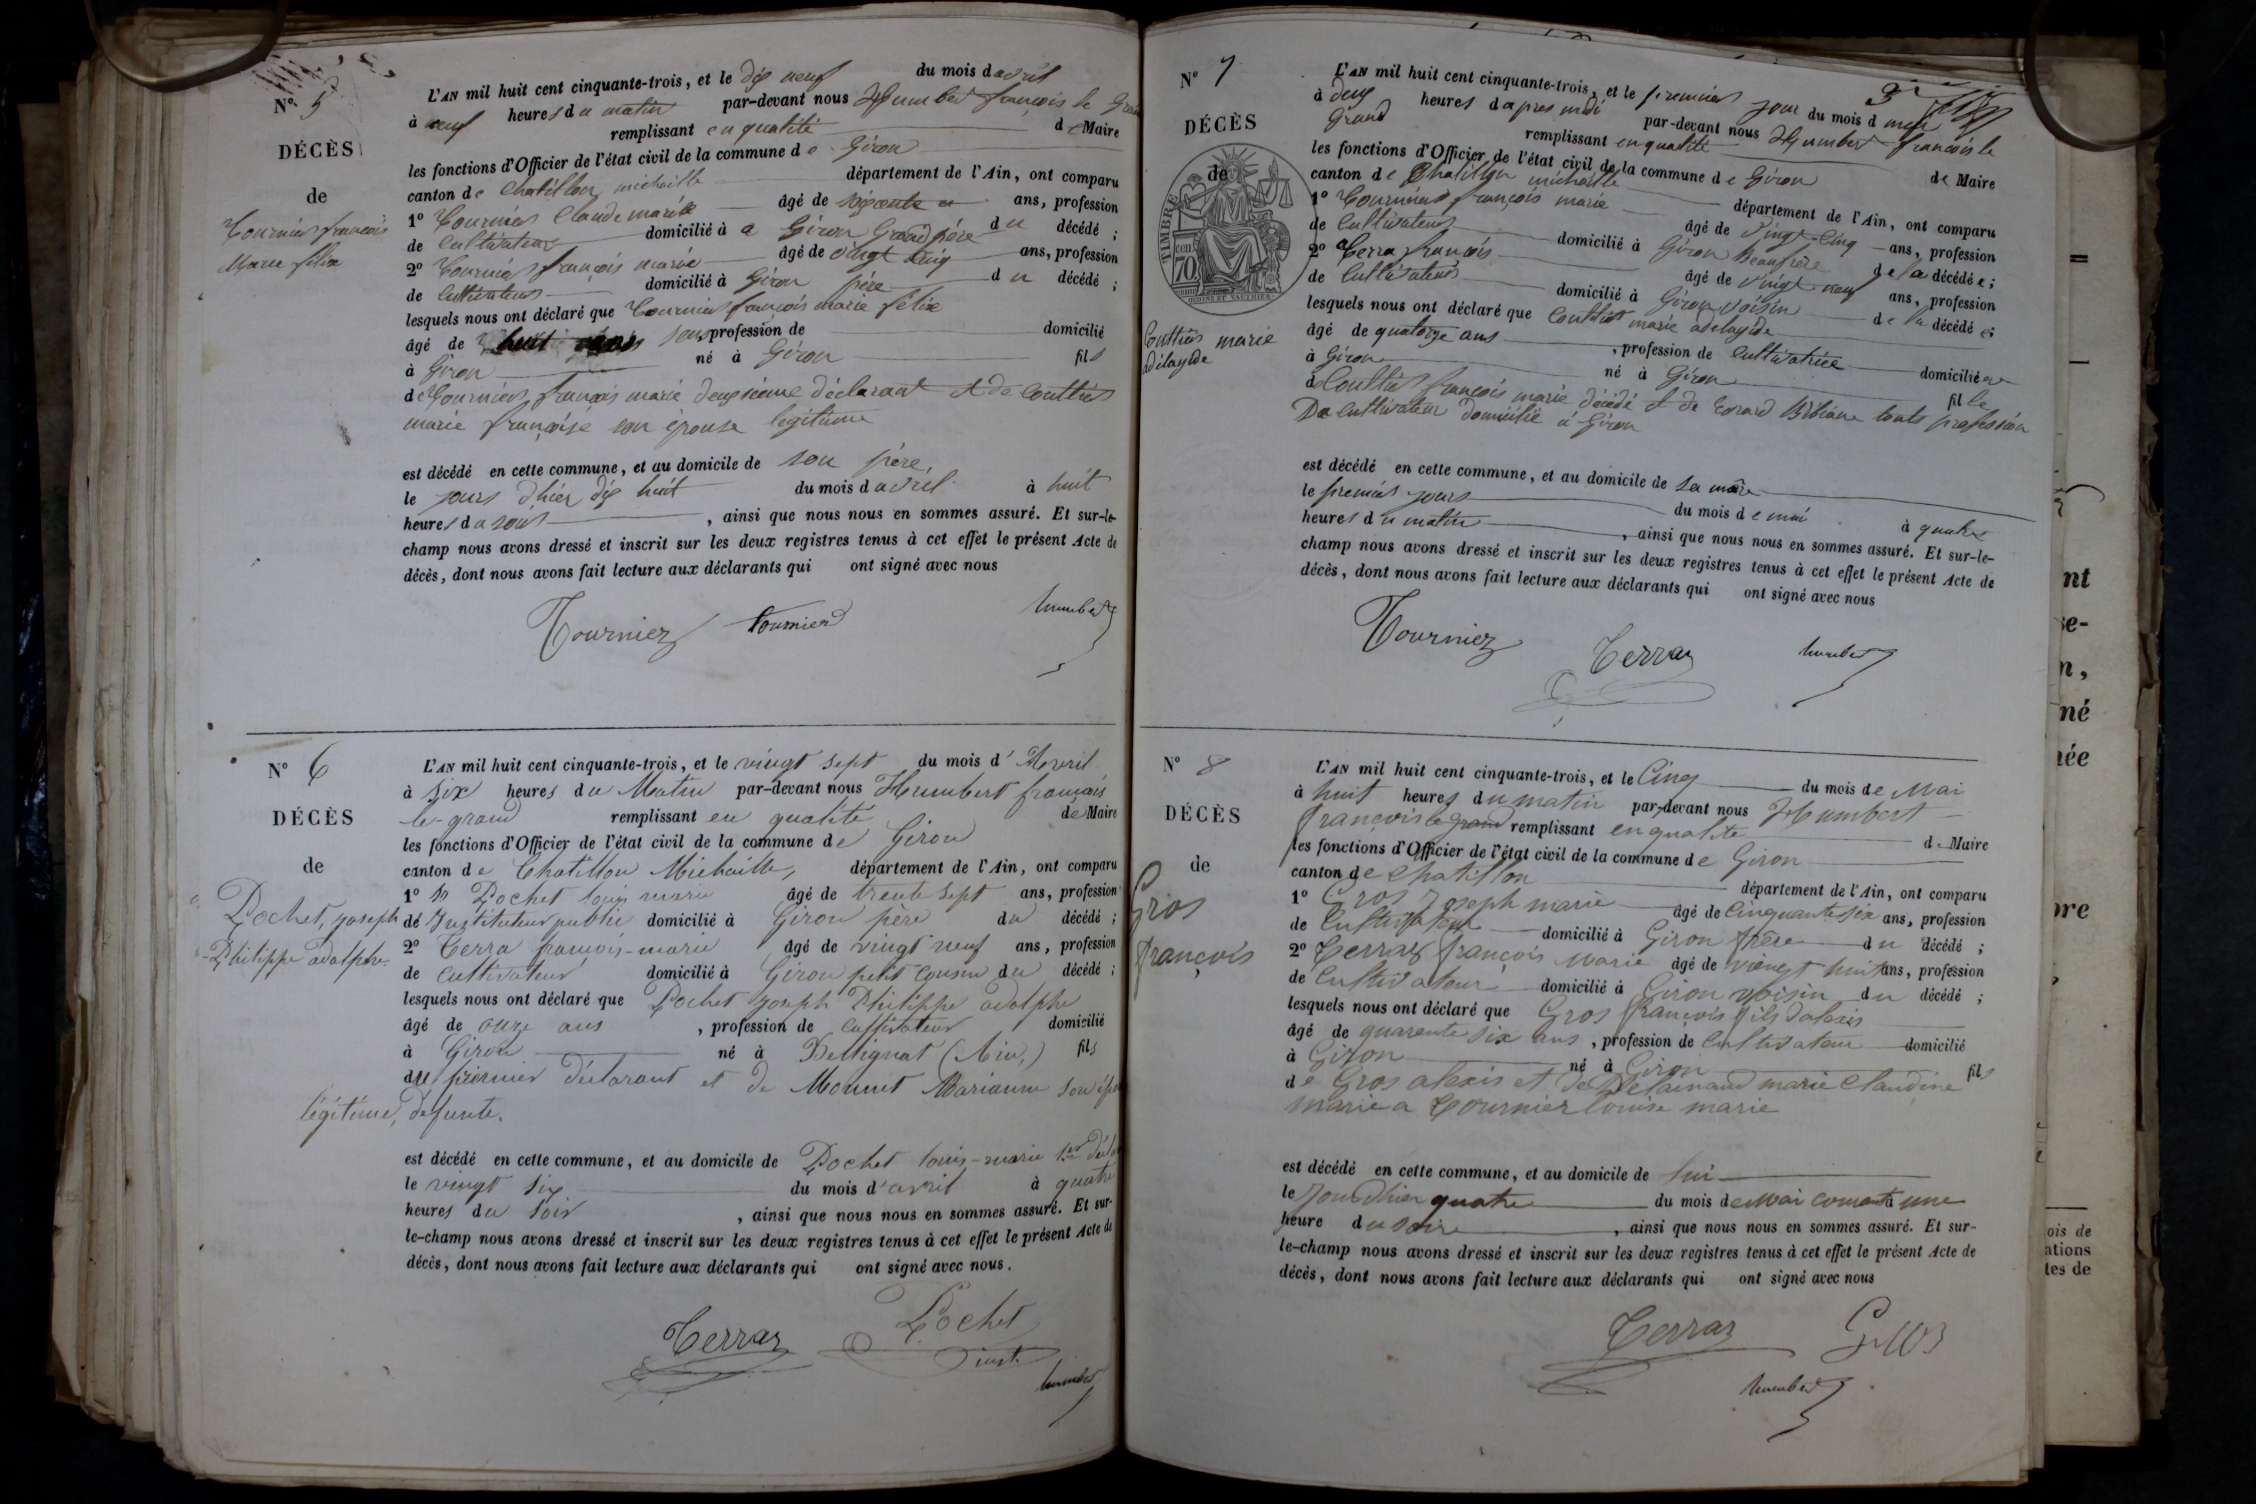 N° 5
DÉCÈS
de
Tournier françois
Marie félix
L'AN mil huit cent cinquante-trois, et le dix neuf du mois d avril
à neuf heures du matin par-devant nous Humbert françois le Grand
remplissant en qualité de Maire
les fonctions d'Officier de l'état civil de la commune de Giron
canton de Chatillon michaille département de l'Ain, ont comparu
1° Tournier Claude marie âgé de ans, profession
de Cultivateur domicilié à a Giron Grand père du décédé ;
2° Tournier françois marie âgé de vingt cinq ans, profession
de Cultivateur domicilié à Giron père du décédé ;
lesquels nous ont déclaré que Tournier françois marie félix
âgé de huit jours, profession de domicilié
à Giron né à Giron fils
de Tournier françois marie deuxième déclarant et de Couttier
marie françoise son épouse legitime
est décédé en cette commune, et au domicile de son père,
le jours d'hier dix huit du mois d avril à huit
heures du soir , ainsi que nous nous en sommes assuré. Et sur-le-
champ nous avons dressé et inscrit sur les deux registres tenus à cet effet le présent Acte de
décès, dont nous avons fait lecture aux déclarants qui ont signé avec nous
Tournier Tournier humbert
N° 6
DÉCÈS
de
Pochet, joseph
Philippe adolphe.
L'AN mil huit cent cinquante-trois, et le vingt sept du mois d' Avril
à six heures du Matin par-devant nous Humbert françois
le-grand remplissant en qualité de Maire
les fonctions d'Officier de l'état civil de la commune de Giron
canton de Chatillon Michaille, département de l'Ain, ont comparu
1° Pochet louis marie âgé de trente sept ans, profession
de Instituteur public domicilié à Giron père du décédé ;
2° Terra françois-marie âgé de vingt neuf ans, profession
de cultivateur domicilié à Giron petit cousin du décédé ;
lesquels nous ont déclaré que Pochet joseph Philippe adolphe
âgé de onze ans , profession de cultivateur domicilié
à Giron né à Bellignat (Ain,) fils
du premier déclarant et de Monnet Marianne son
légitime, defunte.
est décédé en cette commune, et au domicile de Pochet louis-marie 1er
le vingt six du mois d'avril à quatre
heures du soir , ainsi que nous nous en sommes assuré. Et sur-
le-champ nous avons dressé et inscrit sur les deux registres tenus à cet effet le présent Acte de
décès, dont nous avons fait lecture aux déclarants qui ont signé avec nous.
Terraz Pochet
humbert
N° 7
DÉCÈS
de
TIMBRE
70
Couttier marie
adélayde
L'AN mil huit cent cinquante-trois, et le premier jour du mois d mai
à deux heures d apres midi par-devant nous Humbert francois le
Grand remplissant en qualité de Maire
les fonctions d'Officier de l'état civil de la commune de Giron
canton de Chatillon michaille département de l'Ain, ont comparu
1° Tournier françois marie âgé de vingt cinq ans, profession
de Cultivateur domicilié à Giron Beaufrère de la décédée ;
2° Terra françois âgé de vingt neuf ans, profession
de Cultivateur domicilié à Giron voisin de la décédée ;
lesquels nous ont déclaré que Couttier marie adelayde
âgé de quatorze ans , profession de Cultivatrice domiciliée
à Giron né à Giron fille
d Couttier françois marie décédé et de Biblane touts profession
De Cultivateur domicilié à Giron
est décédé en cette commune, et au domicile de sa mère
le premier jours du mois de mai à quatre
heures du matin , ainsi que nous nous en sommes assuré. Et sur-le-
champ nous avons dressé et inscrit sur les deux registres tenus à cet effet le présent Acte de
décès, dont nous avons fait lecture aux déclarants qui ont signé avec nous
Tournier Terraz humbert
N° 8
DÉCÈS
de
Gros
françois
L'AN mil huit cent cinquante-trois, et le Cinq du mois de Mai
à huit heures du matin par-devant nous Humbert
françois le grand remplissant en qualité de Maire
les fonctions d'Officier de l'état civil de la commune de Giron
canton de Chatillon département de l'Ain, ont comparu
1° Gros Joseph marie âgé de Cinquante six ans, profession
de Cultivateur domicilié à Giron frère du décédé ;
2° Terraz françois Marie âgé de vingt huit ans, profession
de Cultivateur domicilié à Giron voisin du décédé ;
lesquels nous ont déclaré que Gros françois fils d'alexis
âgé de quarente six ans , profession de Cultivateur domicilié
à Giron né à Giron fils
de Gros alexis et de marie Claudine
marie a Tournier louise marie
est décédé en cette commune, et au domicile de lui
le Jour d'hier quatre du mois de Mai à une
heure du soir , ainsi que nous nous en sommes assuré. Et sur-
le-champ nous avons dressé et inscrit sur les deux registres tenus à cet effet le présent Acte de
décès, dont nous avons fait lecture aux déclarants qui ont signé avec nous
Terraz Gros
humbert